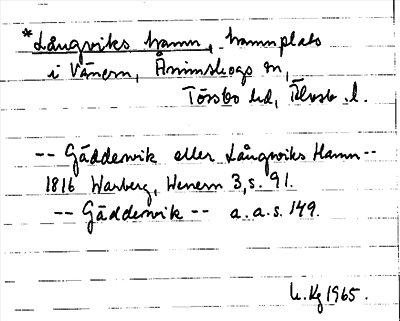 *Långviks hamn, hamnplats
i Vänern, Ånimskogs sn,
Tössbo hd, Älvsb. l.
-- Gäddervik eller Långwiks Hamn --
1816 Warberg, Wenern 3, s. 91.
-- Gäddervik -- a.a.s. 149.
1965.